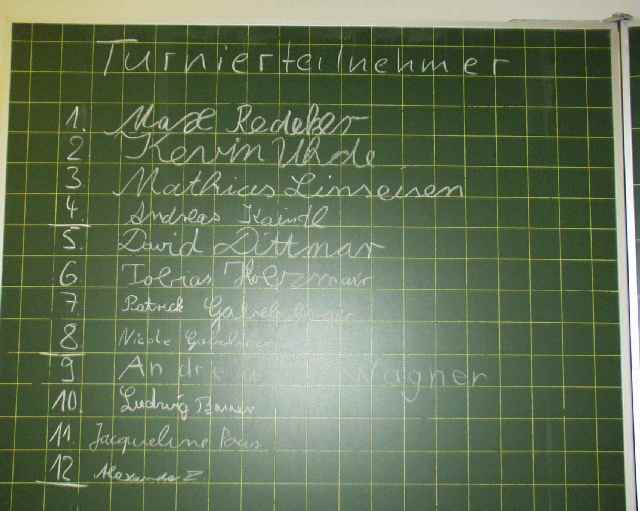 Turnierteilnehmer
1. Max Redeker
2 Kevin Uhde
3 Mathias Linseisen
4. Andreas Kaindl
5. David Dittmar
6 Tobias Holzmair
7 Patrick
8 Nicole
9 Wagner
10. Ludwig
11. Jacqueline
12 Alexander Z